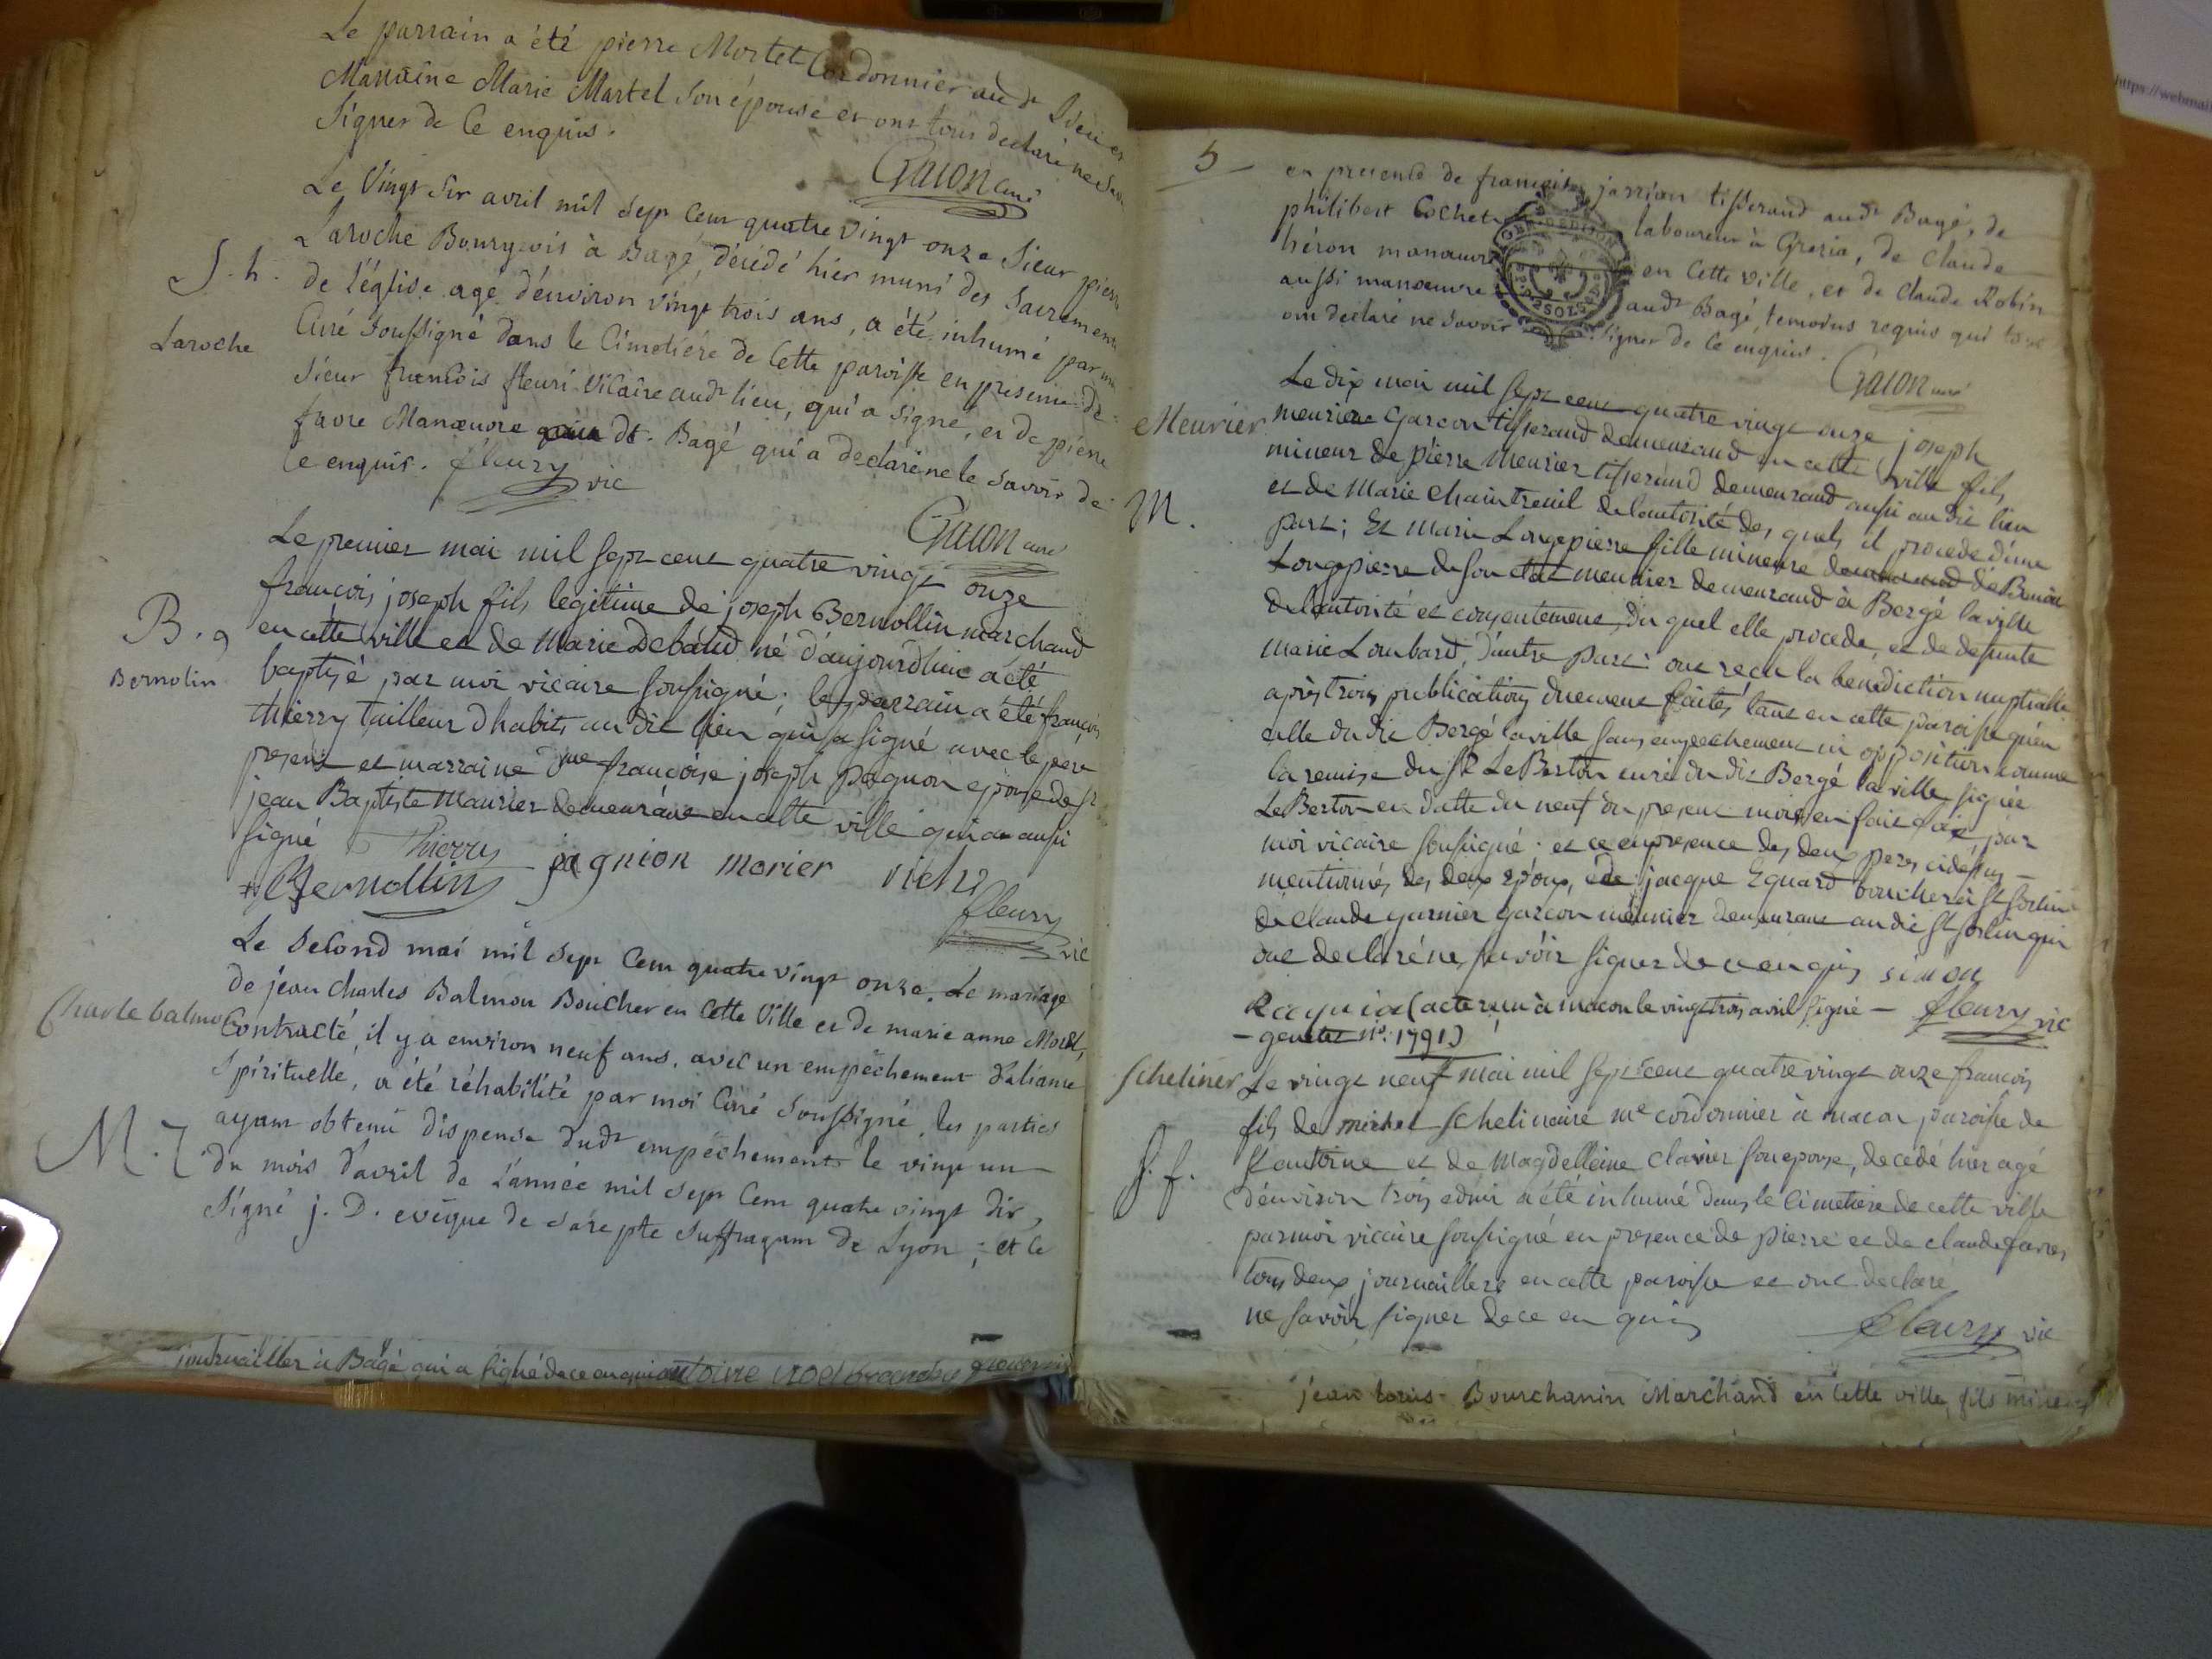 Le parrain a été pierre Mortet Cordonnier aud^t Lieu et
Marraine Marie Martel son épouse et ont tous declaré ne Savoir
Signer de Ce enquis.
Gacon curé
Le Vingt Six avril mil Sept Cent quatre Vingt onze Sieur pierre
Laroche Bourgeois à Bagé, décédé hier muni des Sacremens
S. h. de l'église agé d'environ vingt trois ans, a été inhumé par moi
Laroche Curé Soussigné dans le Cimetiére de Cette paroisse en presence de
Sieur francois fleuri Vicaire aud^t lieu, qui a signé, et de pierre
favre Manoeuvre dt. Bagé qui a declaré ne le Savoir de
Ce enquis. fleury vic
Gacon curé
Le premier mai mil sept cent quatre vingt onze
françois joseph fils legitime de joseph Bernollin marchand
B. 9 en cette ville et de Marie Debaud né d'aujourdhuic a été
Bernolin baptisé par moi vicaire soussigné; le parrain a été françois
thierry tailleur d'habits au dit lieu qui a signé avec le pere
present et marraine d^me françoise joseph pagnon epouse de s^r
jean Baptiste Maurier demeurant en cette ville qui a aussi
signé Thierry pagnion morier
Bernollin fleury vic
Le Second mai mil Sept Cent quatre vingt onze. Le mariage
de jean Charles Balmon Boucher en Cette Ville et de marie anne Morel,
Charle balmon Contracté, il y a environ neuf ans, avec un empêchement d'aliance
Spirituelle, a été réhabilité par moi Curé Soussigné, les parties
M. 7 ayant obtenu dispense dud^t empêchement le vingt un
du mois d'avril de L'année mil Sept Cent quatre vingt dix,
Signé j. D. evêque de Sarepte Suffragant de Lyon; et ce
journaillier à Bagé qui a signé de ce enquis antoine
5
en presence de francois jarrian tisserand aud^t Bagé, de
philibert Cochet laboureur à Grezia, de Claude
héron manoeuvre en Cette ville, et de Claude Robin
aussi manoeuvre aud^t Bagé, temoins requis qui tous
ont declaré ne Savoir Signer de Ce enquis.
Gacon curé
Le dix mai mil sept cent quatre vingt onze joseph
Meurier meurier Garcon tisserand demeurant en cette ville fils
mineur de pierre Meurier tisserand demeurand aussi au dit lieu
M. et de Marie Chaintreuil de l'autorité des quels il procede d'une
part; Et Marie Longepierre fille mineure demeurand de Benoit
Longepierre de son etat meunier demeurand à Bergé la ville
de l'autorité et consentement du quel elle procede, et de defunte
Marie Lombard, d'autre part: ont reçu la benediction nuptiale
après trois publications duement faites tant en cette paroisse qu'en
celle du dit Bergé la ville sans empechement ni opposition comme
la remise du s^r Le Berton curé du dit Bergé la ville signée
Le Berton en datte du neuf du present mois en fait foi, par
moi vicaire soussigné. et ce en presence des deux peres cidessus
mentionnés des deux epoux, et de jacque Eguard boucher à St Sorlin
de claude garnier garcon meunier demeurant au dit St Sorlin qui
ont declaré ne savoir signer de ce enquis
(acte reçu à macon le vingt trois avril signé — fleury vic
1791)
Scheliner Le vingt neuf mai mil sept cent quatre vingt onze francois
fils de michel Schelinaire m^e cordonnier à macon paroisse de
S. f. St antoine et de Magdelleine Clavier son epouse, decedé hier agé
d'environ trois et demi a été inhumé dans le cimetiere de cette ville
par moi vicaire soussigné en presence de pierre et de claude favres
tous deux journailliers en cette paroisse et ont declaré
ne savoir signer de ce enquis
fleury vic
jean Louis Bourchanin Marchand en Cette ville, fils mineur